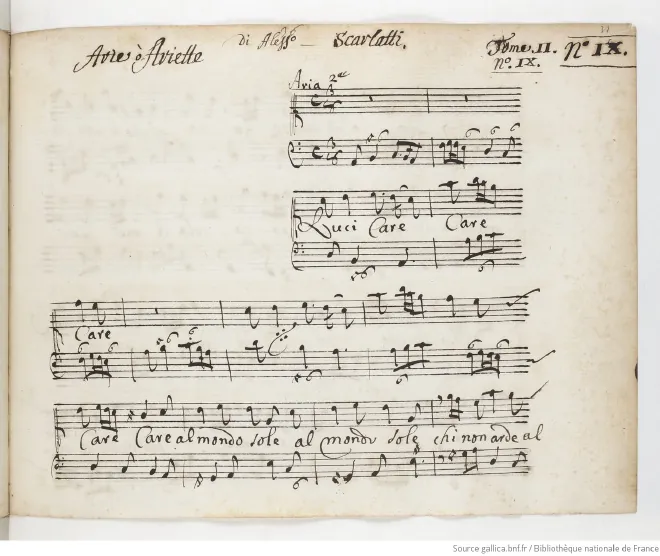 Arie ò Ariette
di Alessо — Scarlatti.
Tome. II.
n.º IX.
Nº IX.
Aria 2ª
Luci Care Care
Care
Care Care al mondo sole al mondo sole chi non arde al
Source gallica.bnf.fr / Bibliothèque nationale de France